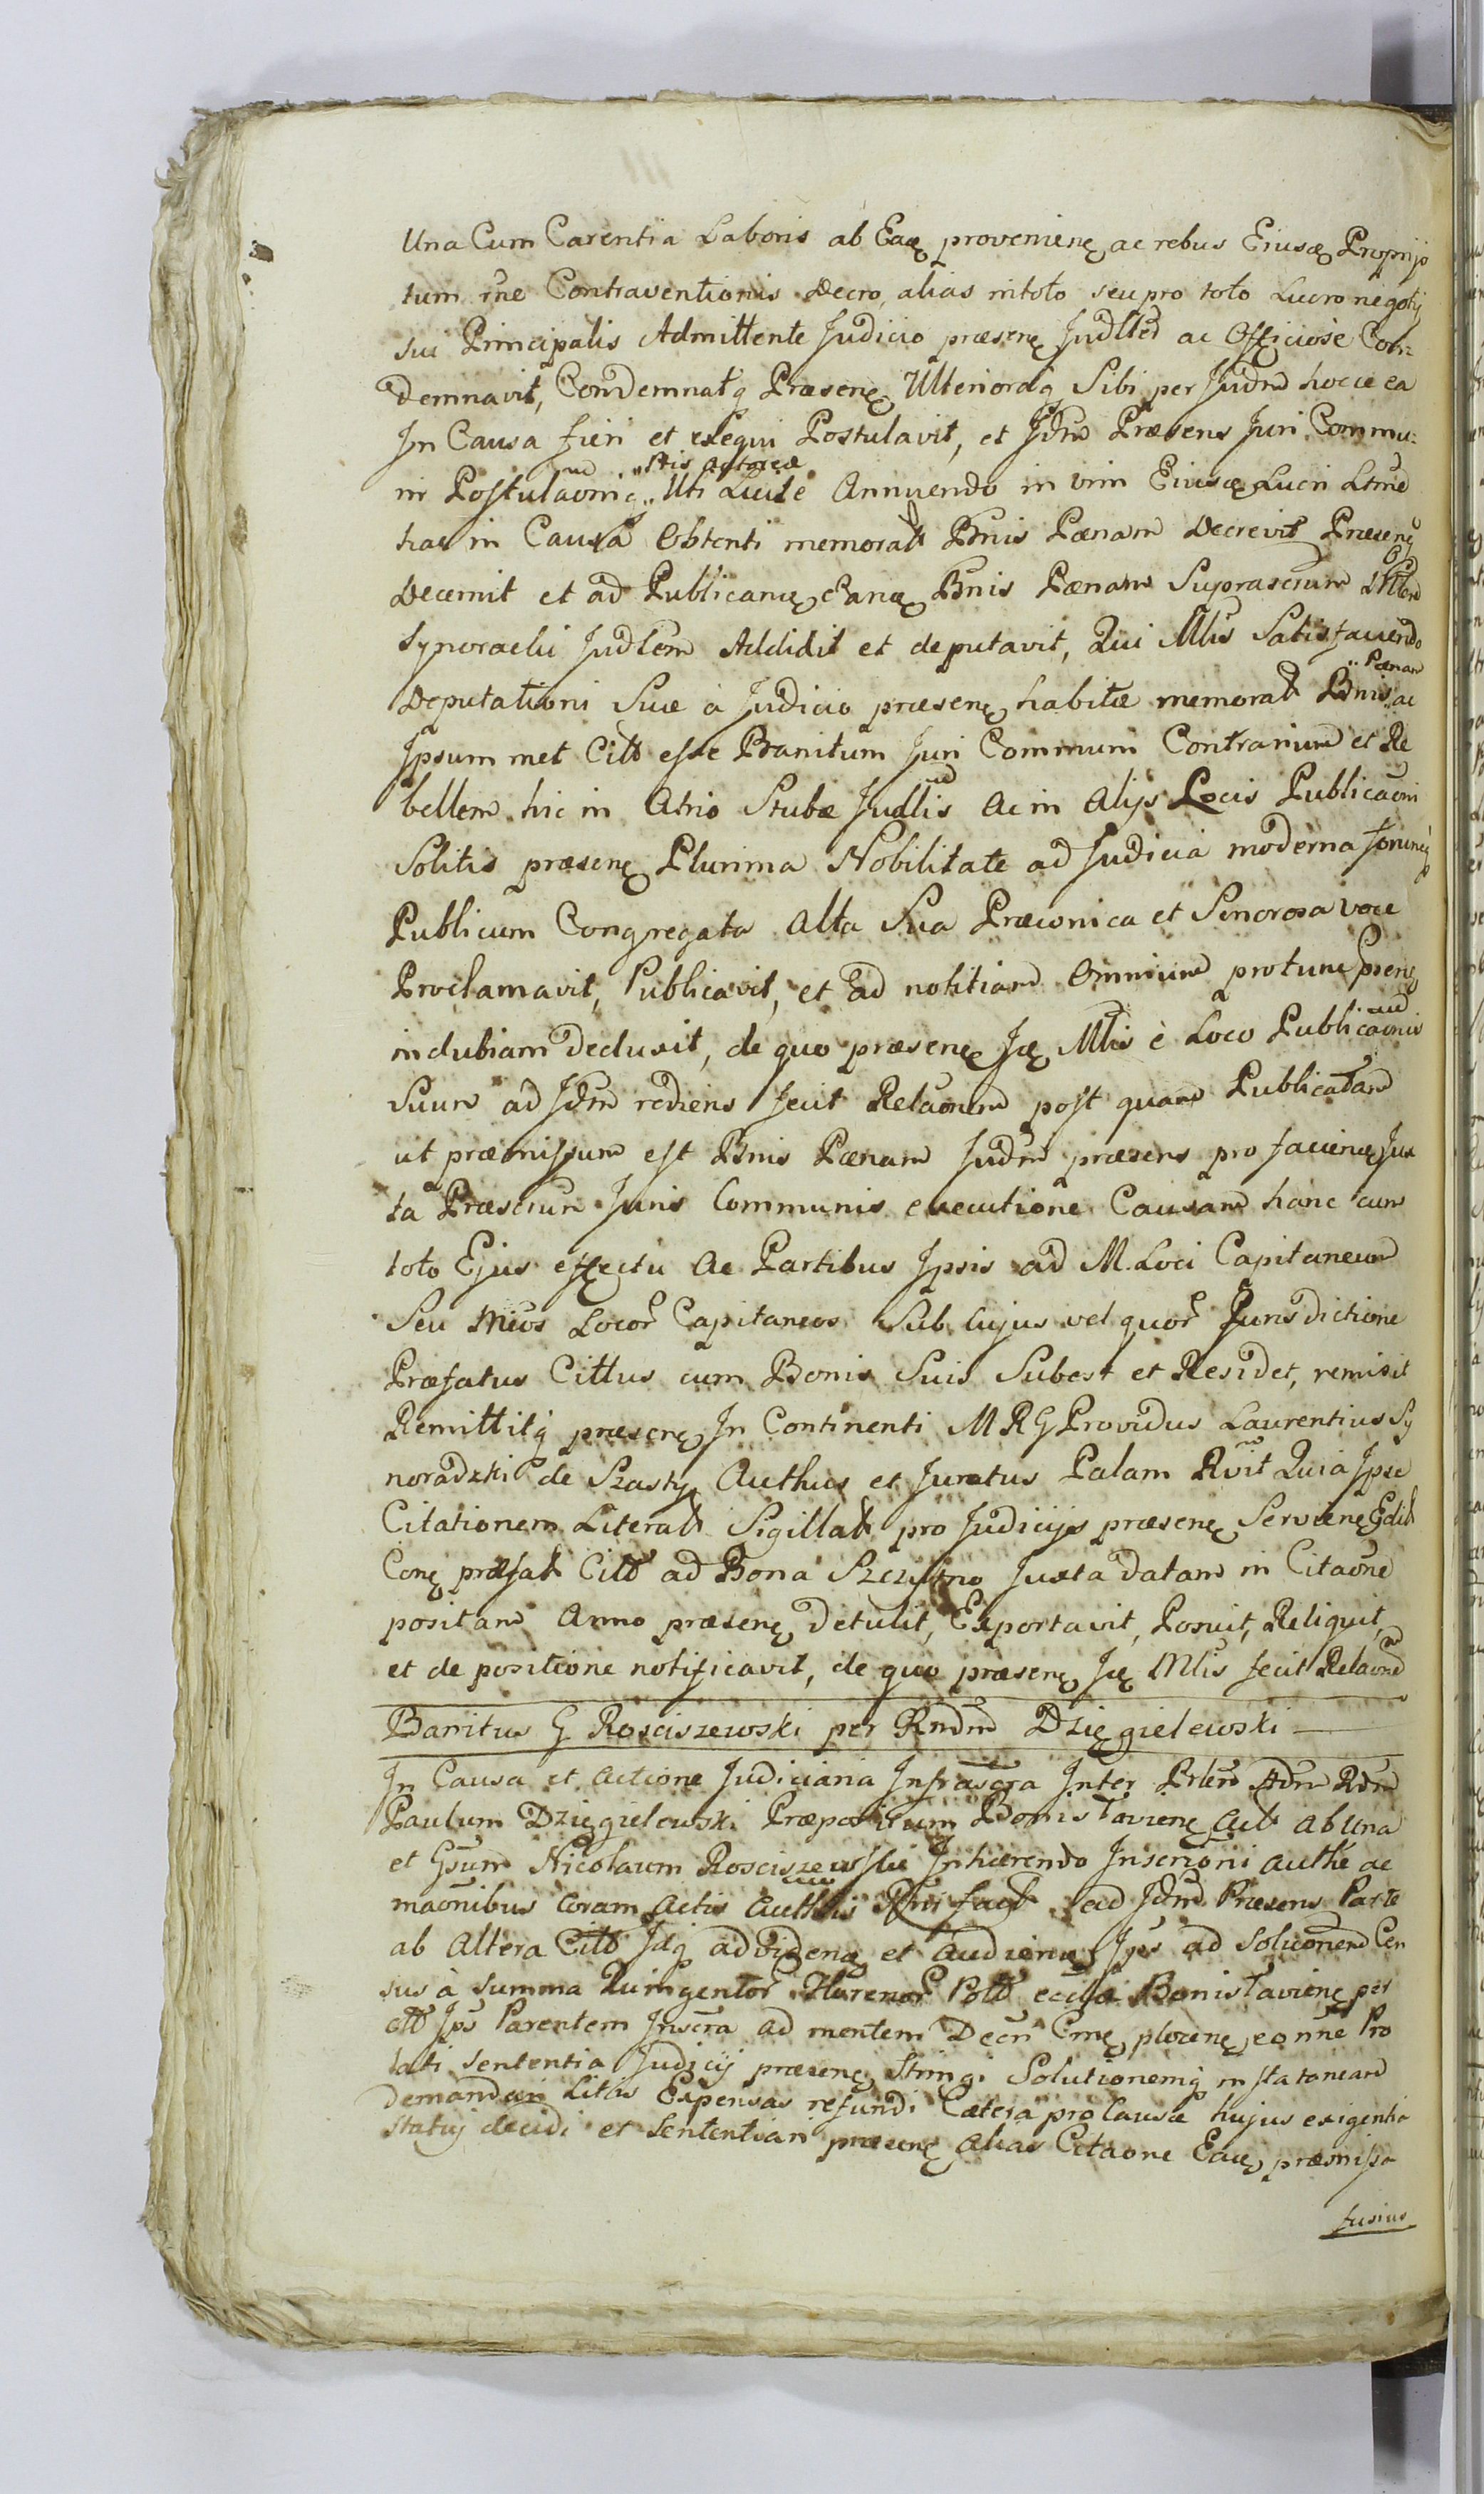 Una Cum Carentia Laboris ab Eaę provenienę ac rebus Eiusę Proprijs
tum rne Contraventionis Decro, alias in toto seu pro toto Lucro negotij
sui Principalis Admittente Judicio præsenę Judllter ac Officiosè Con=
demnavit, Condemnatq Præsenę Ulteriorałg Sibi per Judm hocce ea
In Causa fieri et exequi Postulavit, et Jdm Præsens Juri Commu=
ni Postulaoniq Uti Licitè Annuendo in vim Eiusę Lucri Ltme
Ptis Actoreæ
hac in Causa Obtenti memorati Bnis Pænam Decrevit Præsenę
Decernit et ad Publicanę Eanę Bnis Pænam Suprascrum Mtlem
Synoracki Judlem Addidit et deputavit, Qui Mlis Satisfaciendo
Deputationi Suæ à Judicio præsenę habitæ memorat Bnis ac
Pænam
Ipsum met Citt esse Banitum Juri Communi Contrarium et Re
bellem hic in Atrio Stubæ Judlis Ac in Alijs Locis Publicaoni
Solitis præsenę Plurima Nobilitate ad Judicia moderna forumq
Publicum Congregata Alta Sua Præconica et Sonorosa voce
Proclamavit, Publicavit, et ad notitiam Omnium protunc prenę
indubiam deduxit, de quo præsenę Ję Mlis è Loco Publicaonis
Suum ad Jdm rediens fecit Relaonem post quam Publicatam
ut præmissum est Bnis Pænam Judm præsens pro faciendę Jux
ta Præscrum Juris Communis executione Causam hanc cum
toto Ejus effectu Ac Partibus Ipsis ad M. Loci Capitaneum
Seu Mcos Locor Capitaneos Sub Cujus vel quor Jurisdictione
Præfatus Cittus cum Bonis Suis Subest et Residet, remisit
Remittitq præsenę In Continenti M R G Providus Laurentius Sy
noradzki de Szasty Authus et Juratus Palam Rvit Quia Ipse
Citationem Literat Sigillat pro Judicijs præsenę Servienę Edit
Conę præfat Citt ad Bona Szczytno Juxta datam in Citaone
positam Anno præsenę detulit, Exportavit, Posuit, Reliquit,
et de positione notificavit, de quo præsenę Ję Mlis fecit Relaone
Banitus G Rosciszewski per Rndm Dzięgielewski
In Causa et Actione Judiciaria Infrascra Inter Prlem Adm Rdm
Paulum Dzięgielewski Præpositum Bonistavienę Act Ab Una
et Gsum Nicolaum Rosciszewski Inhærendo Inscrioni Authę ac
maonibus Coram Actis Authis fact ead Jdm Præsens Parte
ab Altera Citt Jdq ad videnę et Audienę Ips ad Soluonem Cen
sus à Summa Quingentor Florenor Poltt eccliæ Bonistavienę per
ott Ips Parentem Inscra ad mentem Decri Cmę plocenę eo nne Pro
lati Sententia Judicij præsenę Stringi Solutionemq instataneam
demandari Litis Expensas refundi Cætera pro Causæ hujus exigentia
Statuj decidi et Sententiari præsenę Alias Citaone Eaę præmissa
fusius